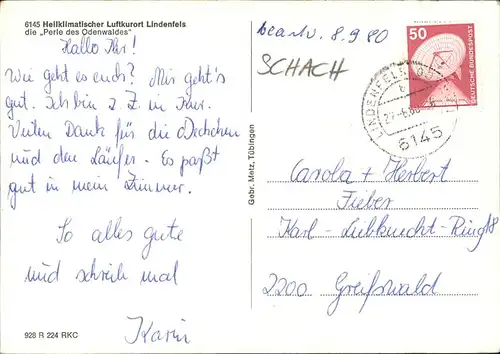 6145 Heilklimatischer Luftkurort Lindenfels
die „Perle des Odenwaldes"
Hallo Ihr!
Wie geht es euch? Mir geht's
gut. Ich bin z. Z. in Kur.
Vielen Dank für die Deckchen
und den Läufer. Es paßt
gut in mein Zimmer.
So alles gute
und schreib mal
Karin
928 R 224 RKC
Gebr. Metz, Tübingen
beantw. 8.9 80
SCHACH
50
DEUTSCHE BUNDESPOST
LINDENFELS
b
6145
Carola + Herbert
Fieber
Karl-Liebknecht-Ring 18
2200 Greifswald